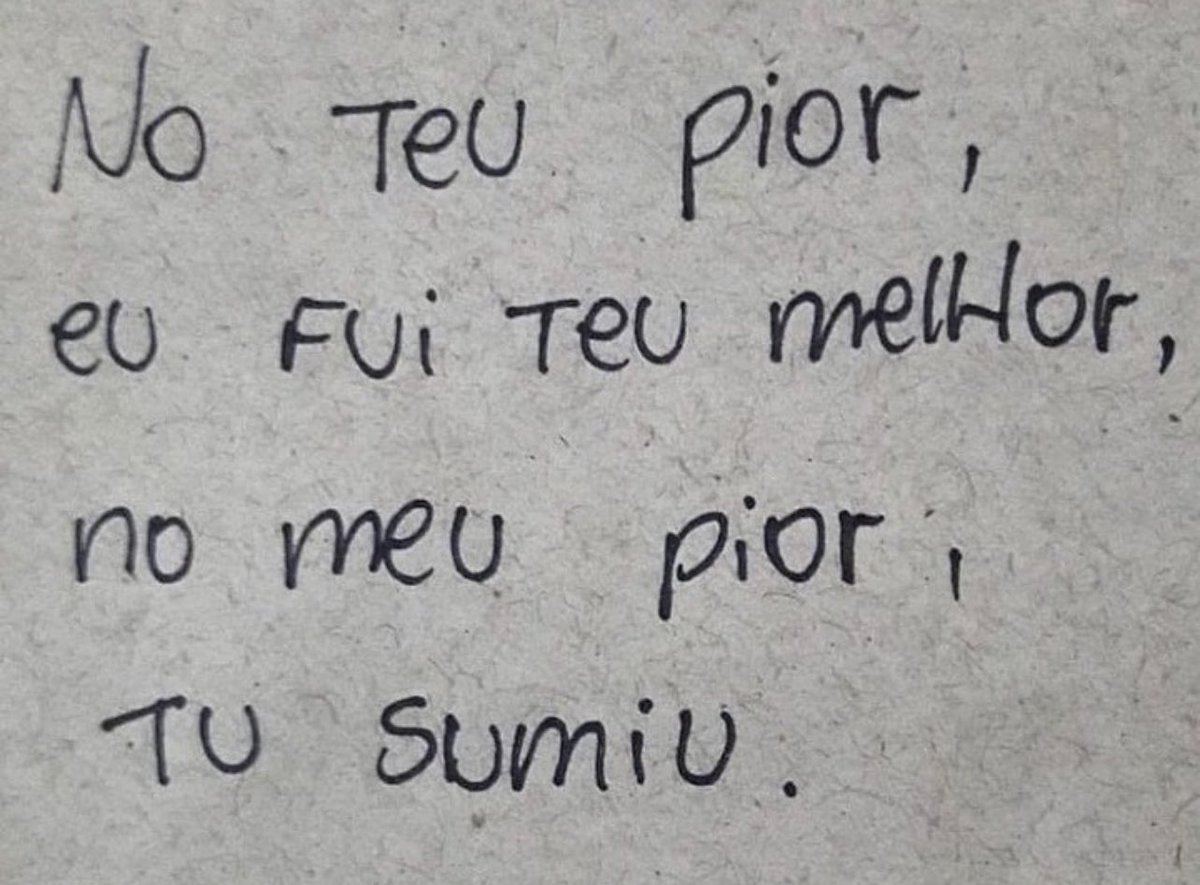 No teu pior,
eu fui teu melhor,
no meu pior,
tu sumiu.